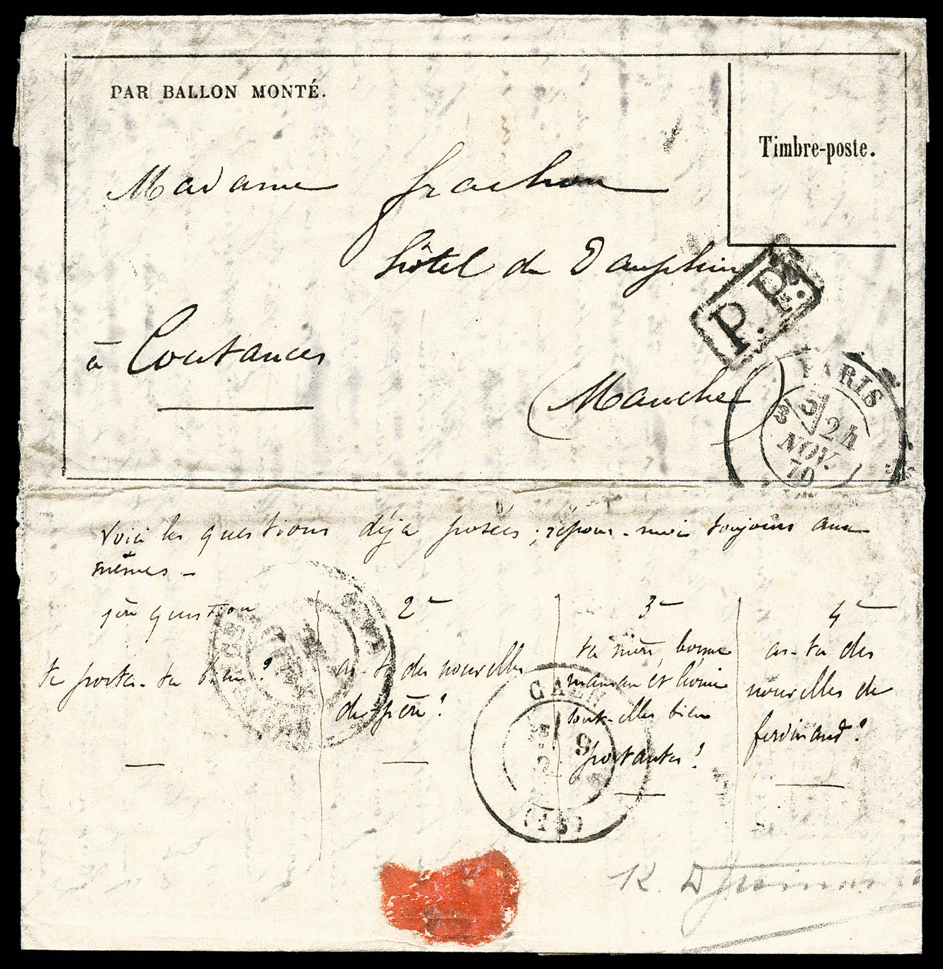 PAR BALLON MONTÉ.
Timbre-poste.
Madame Frachon
hôtel du Dauphin
P.P.
à Coutances
(Manche)
PARIS
24
NOV.
70
Voici les questions déjà posées, répons-moi toujours aux
mêmes –
1ère question
te portes-tu bien?
2e
as-tu des nouvelles
de père?
3e
ta mère, bonne
maman et
sont-elles bien
portantes?
4e
as-tu des
nouvelles de
ferdinand?
CAEN
9